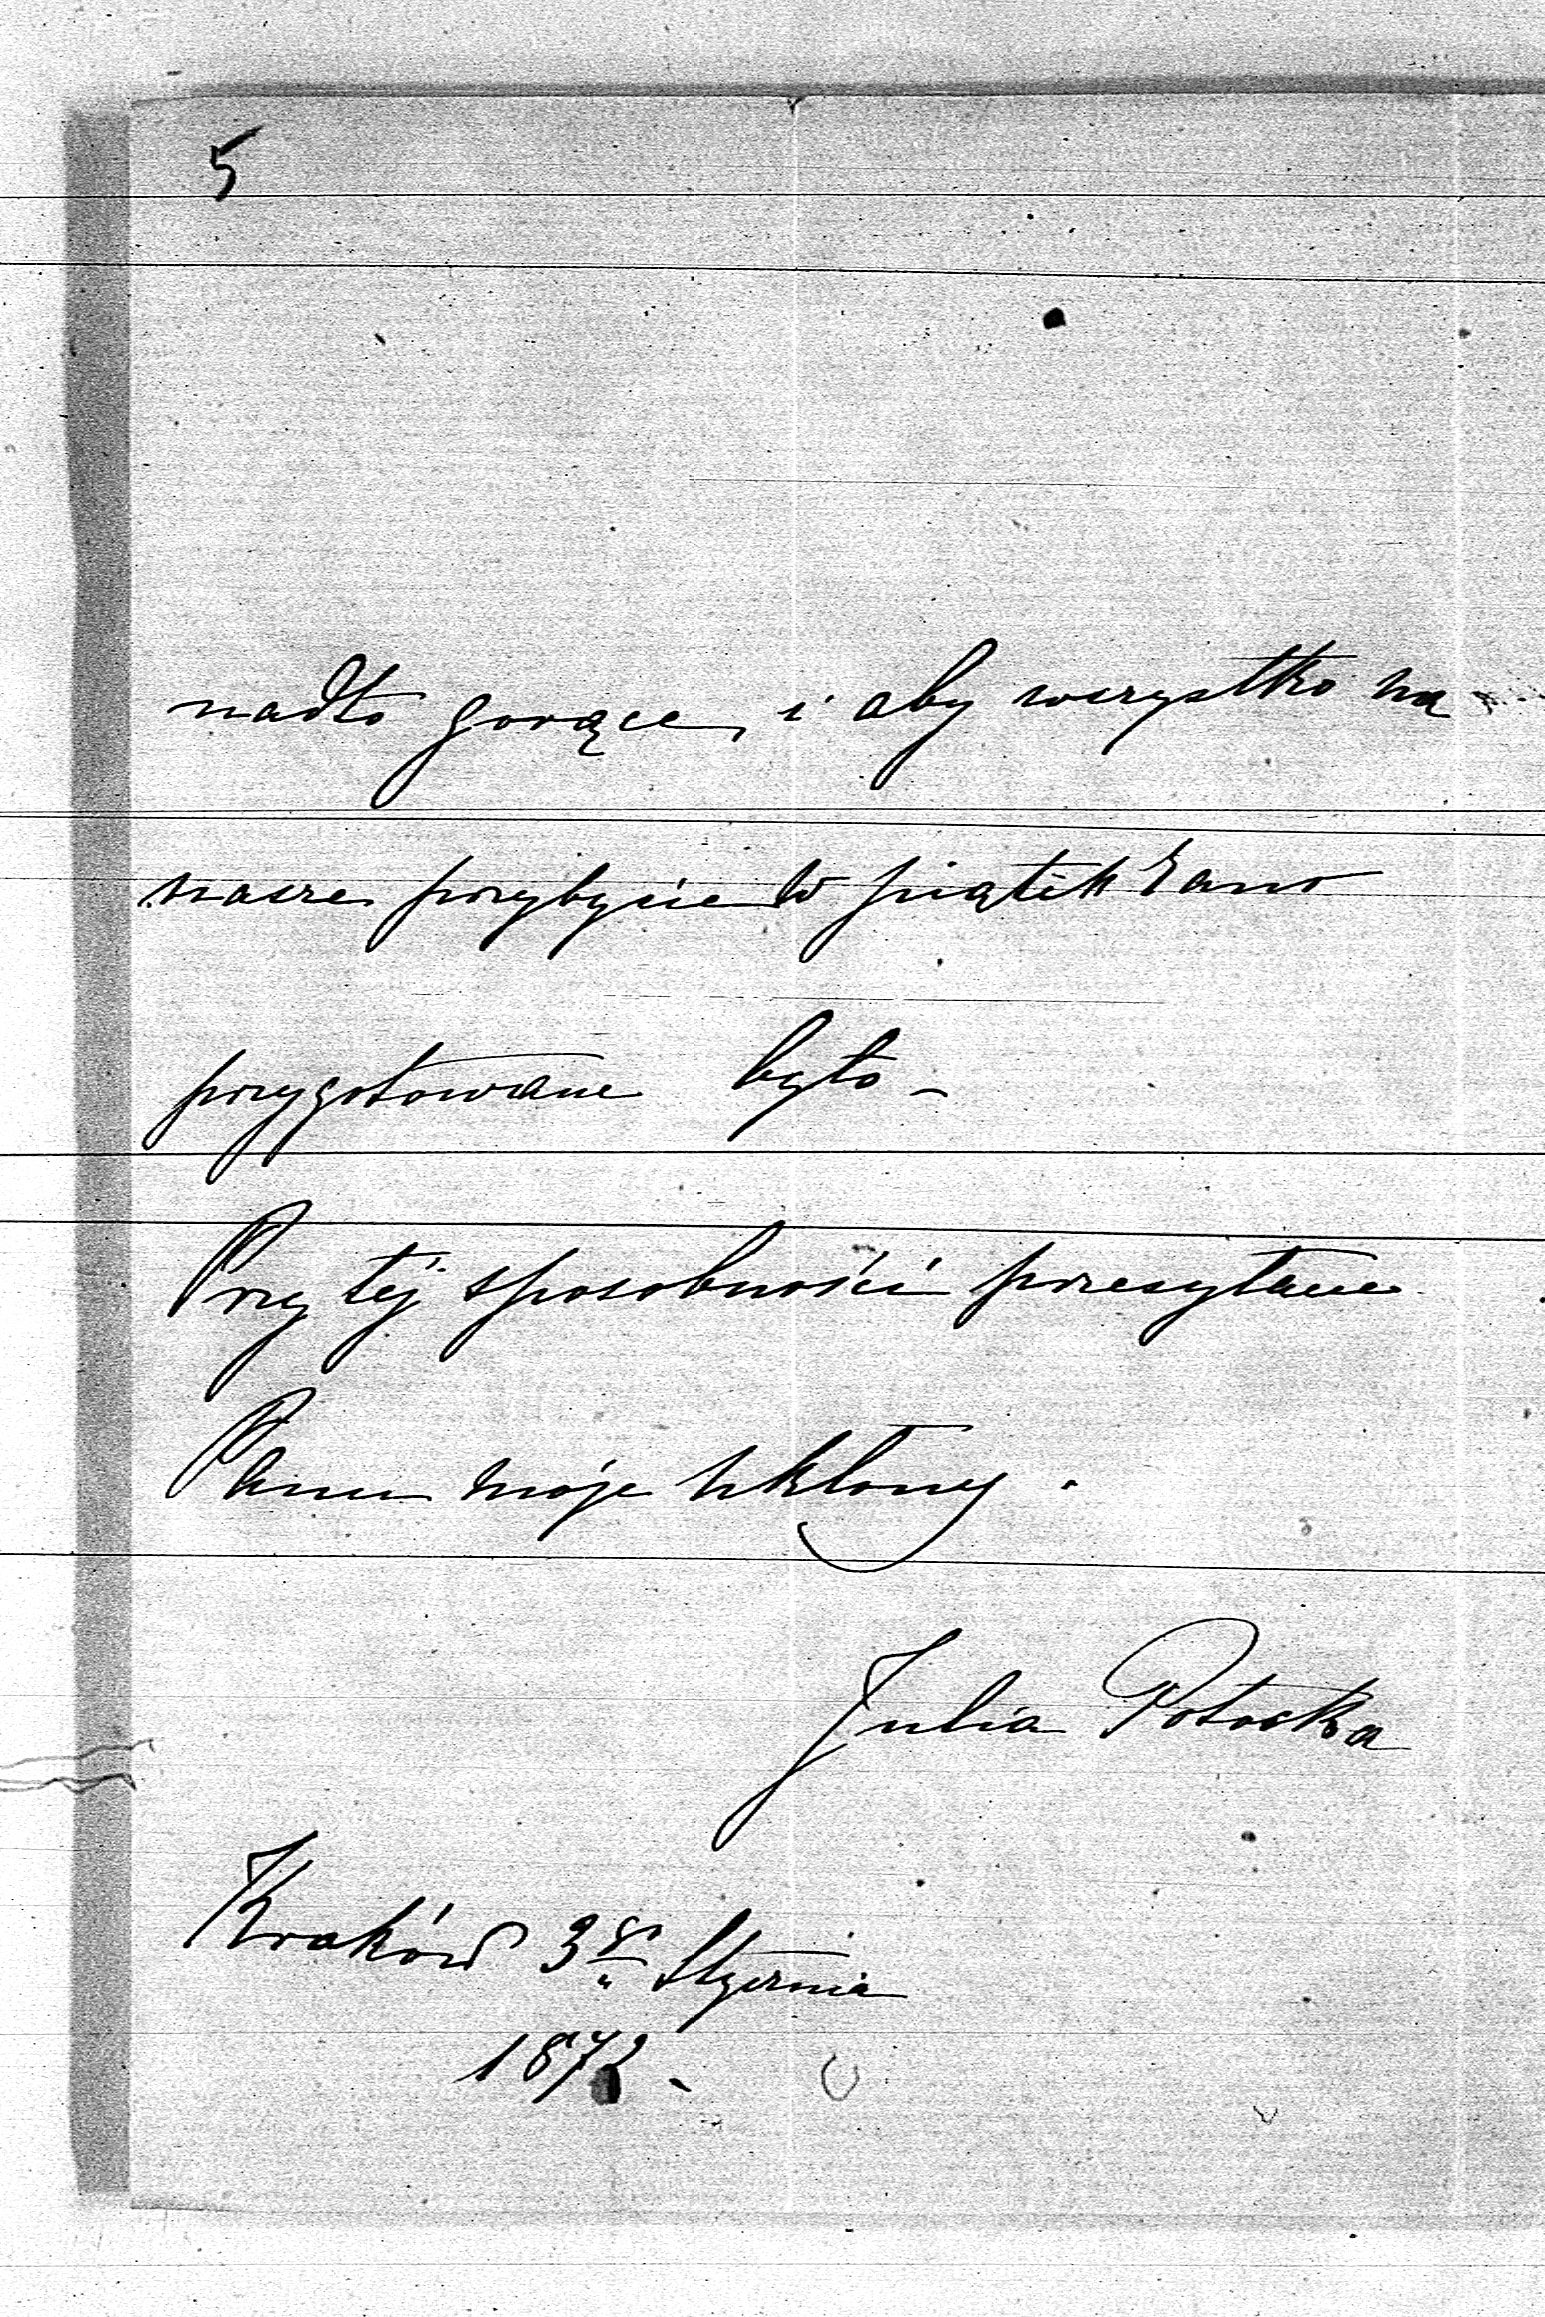 5
nadto gorące, i aby wszystko na
nasze przybycie w piątek rano
przygotowane było –
Przy tej sposobności przesyłam
Panu moje ukłony.
Julia Potocka
Kraków 3go Stycznia
1872 -